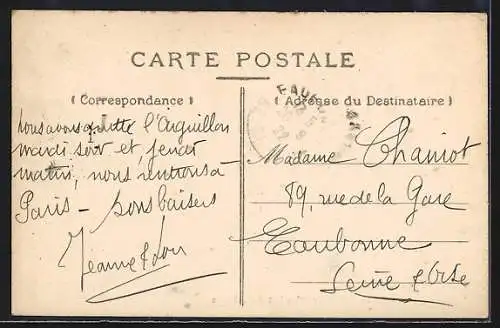 CARTE POSTALE
( Correspondance )
( Adresse du Destinataire )
nous avons quitté l'Aiguillon
mardi soir et, jeudi
matin, nous rentrons à
Paris – bons baisers
Jeanne & Lou
Madame Chaniot
89, rue de la Gare
Eaubonne
Seine & Oise